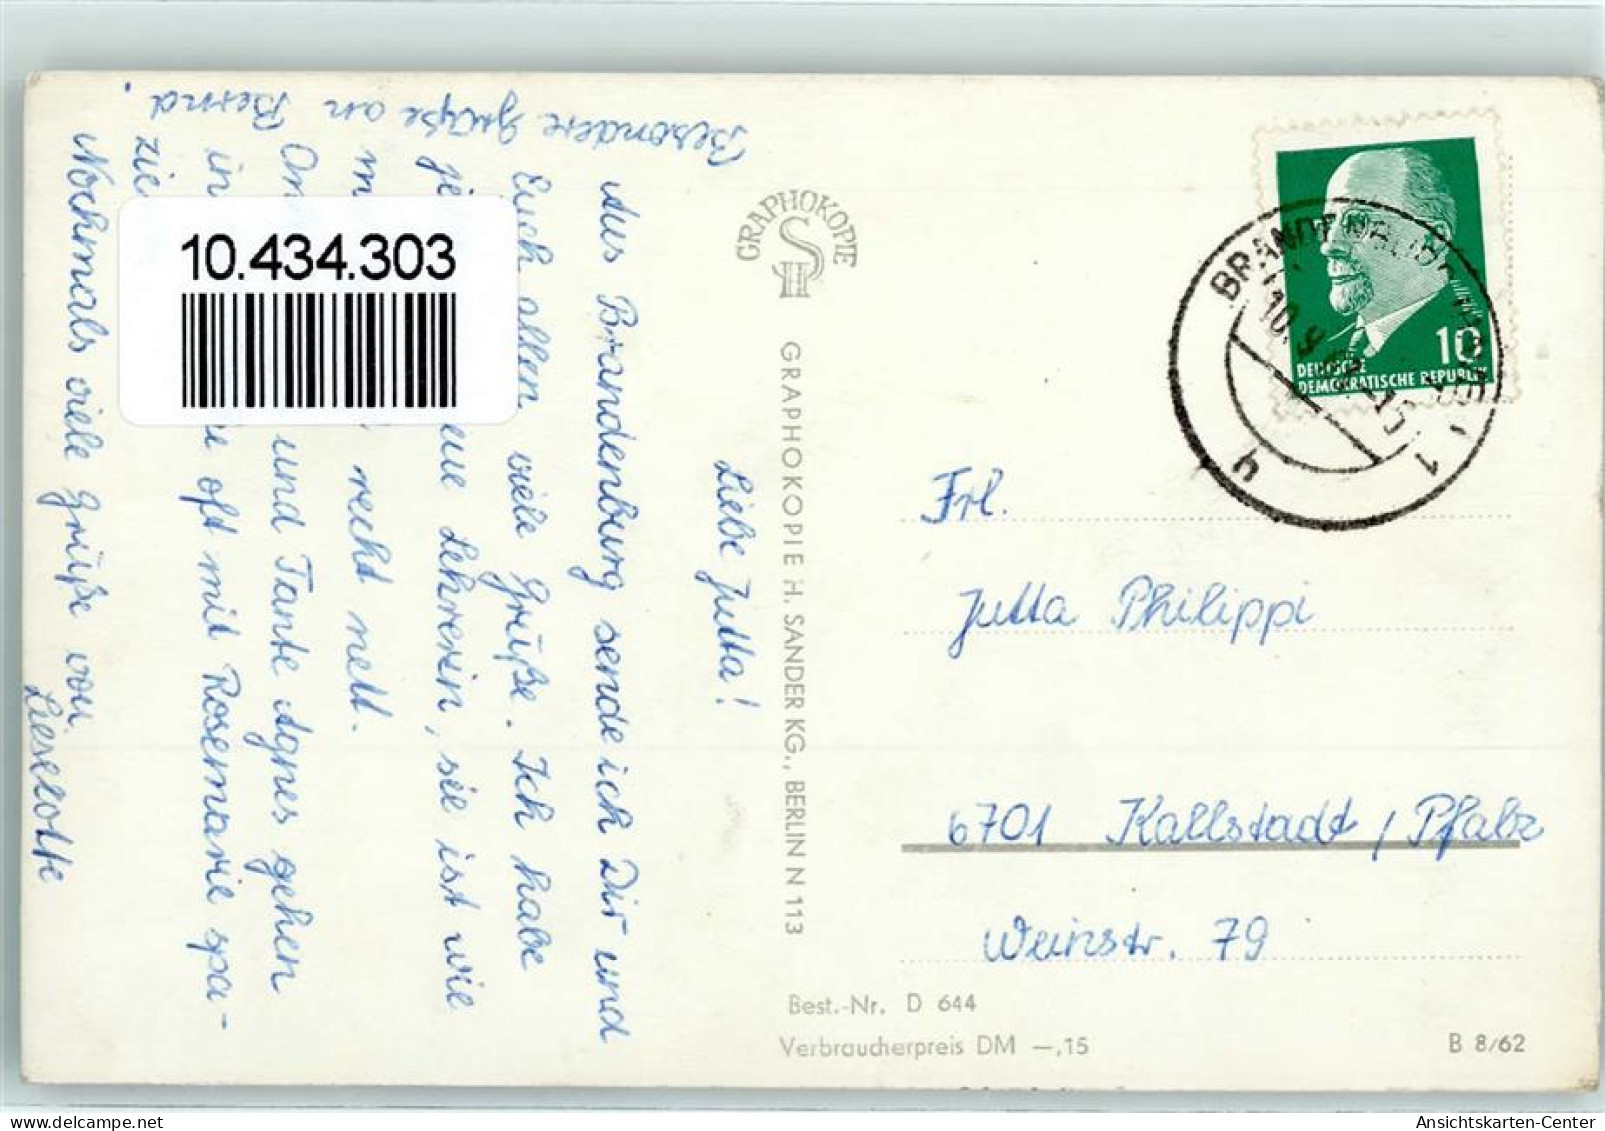 Besondere Grüße an Bernd.
Liebe Jutta!
Aus Brandenburg sende ich Dir und
Euch allen viele Grüße. Ich habe
je eue Lehrerin, sie ist wie
m recht nett.
On und Tante Agnes gehen
in oft mit Rosemarie spa-
zie
Nochmals viele Grüße von
Lieselotte
10.434.303
GRAPHOKOPIE
GRAPHOKOPIE H. SANDER KG., BERLIN N 113
10
DEUTSCHE
DEMOKRATISCHE REPUBLIK
h
1
Frl.
Jutta Philippi
6701 Kallstadt / Pfalz
Weinstr. 79
Best.-Nr. D 644
Verbraucherpreis DM —,15
B 8/62
Ansichtskarten-Center